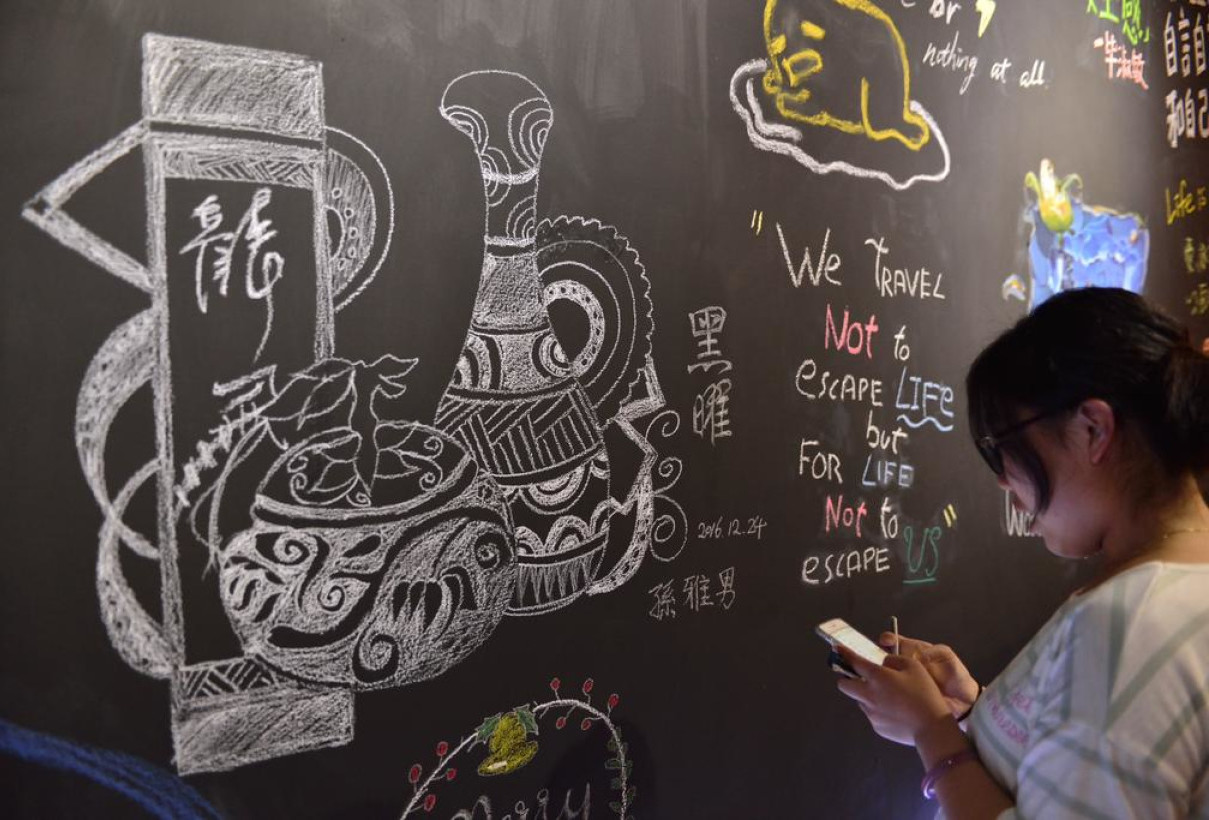 龍
黑
曜
2016.12.24
孫雅男
or
nothing at all
"We TRAVEL
Not to
escape LIFe
but
FOR LIFe
Not to
escape US"
畢淑敏
自
和自己
Life is
Merry